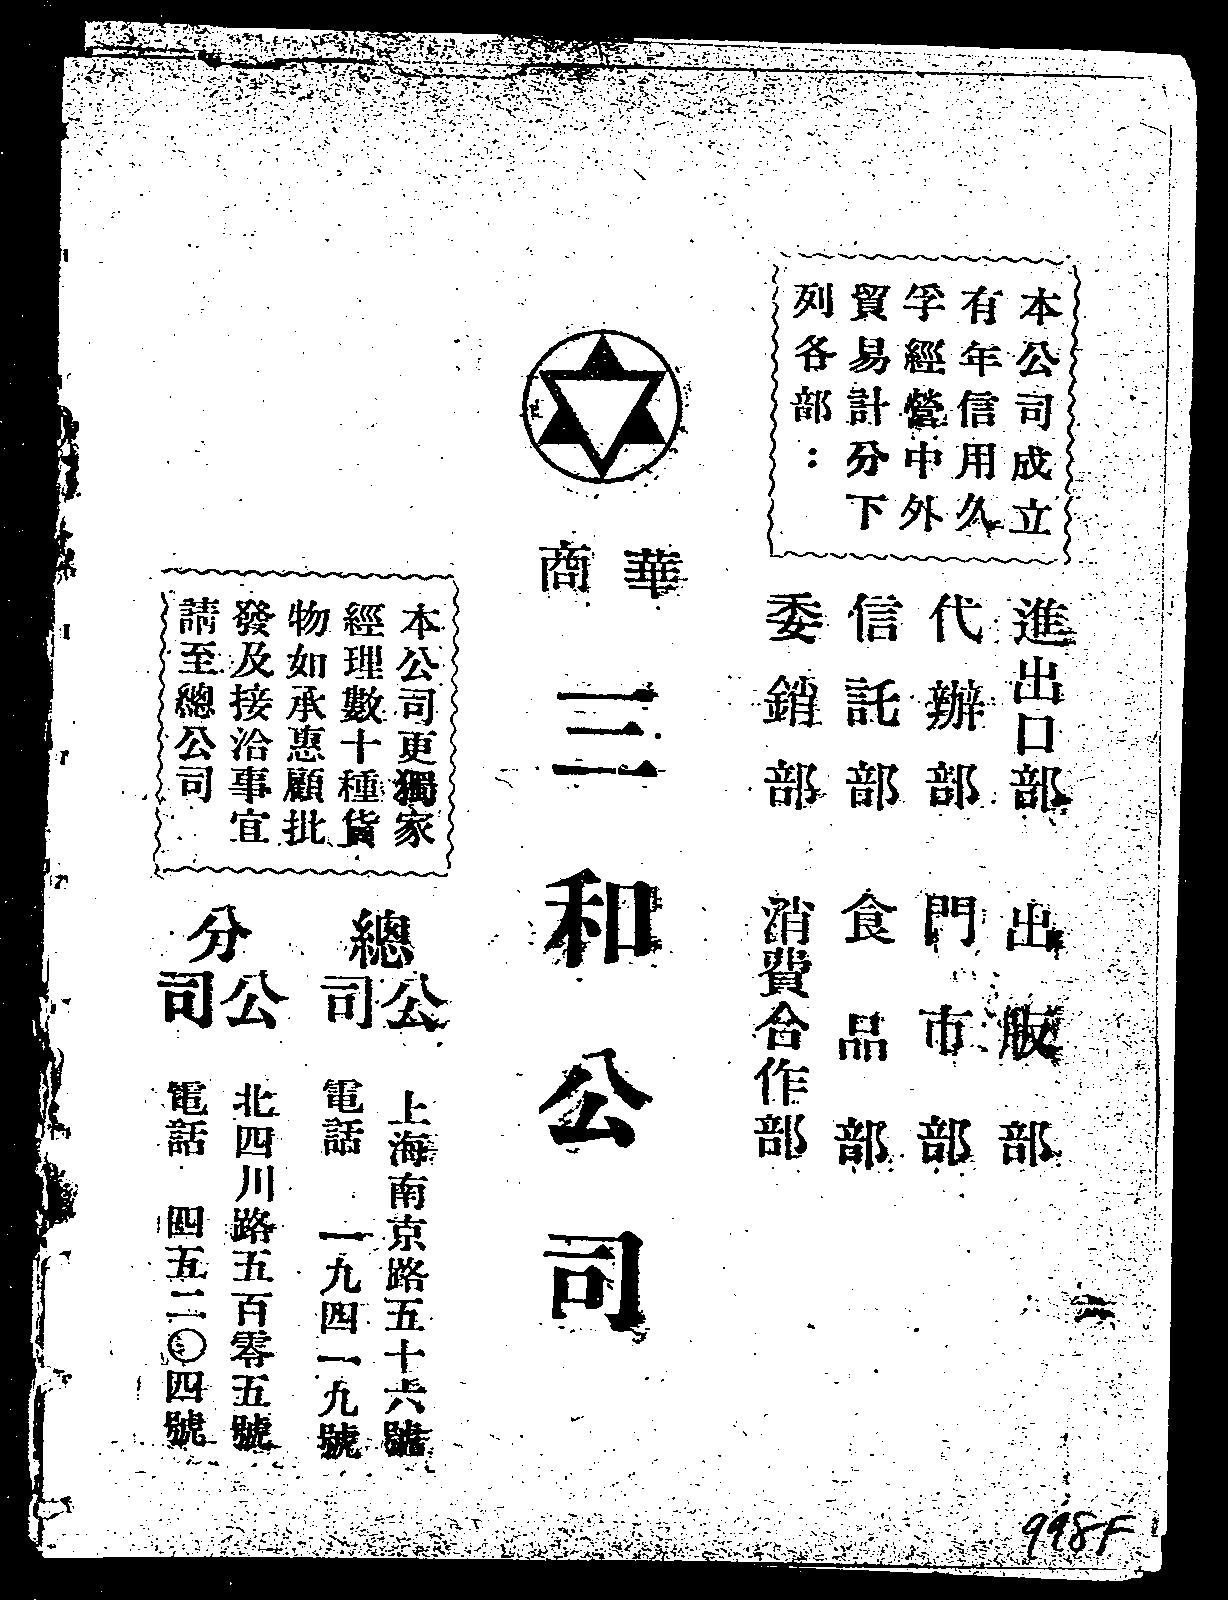 本公司成立
有年信用久
孚經營中外
貿易計分下
列各部：
進出口部
代辦部
信託部
委銷部
出版部
門市部
食品部
消費合作部
華商
三和公司
本公司更獨家
經理數十種貨
物如承惠顧批
發及接洽事宜
請至總公司
總公司
上海南京路五十六號
電話 一九四一九號
分公司
北四川路五百零五號
電話 四五二〇四號
998F